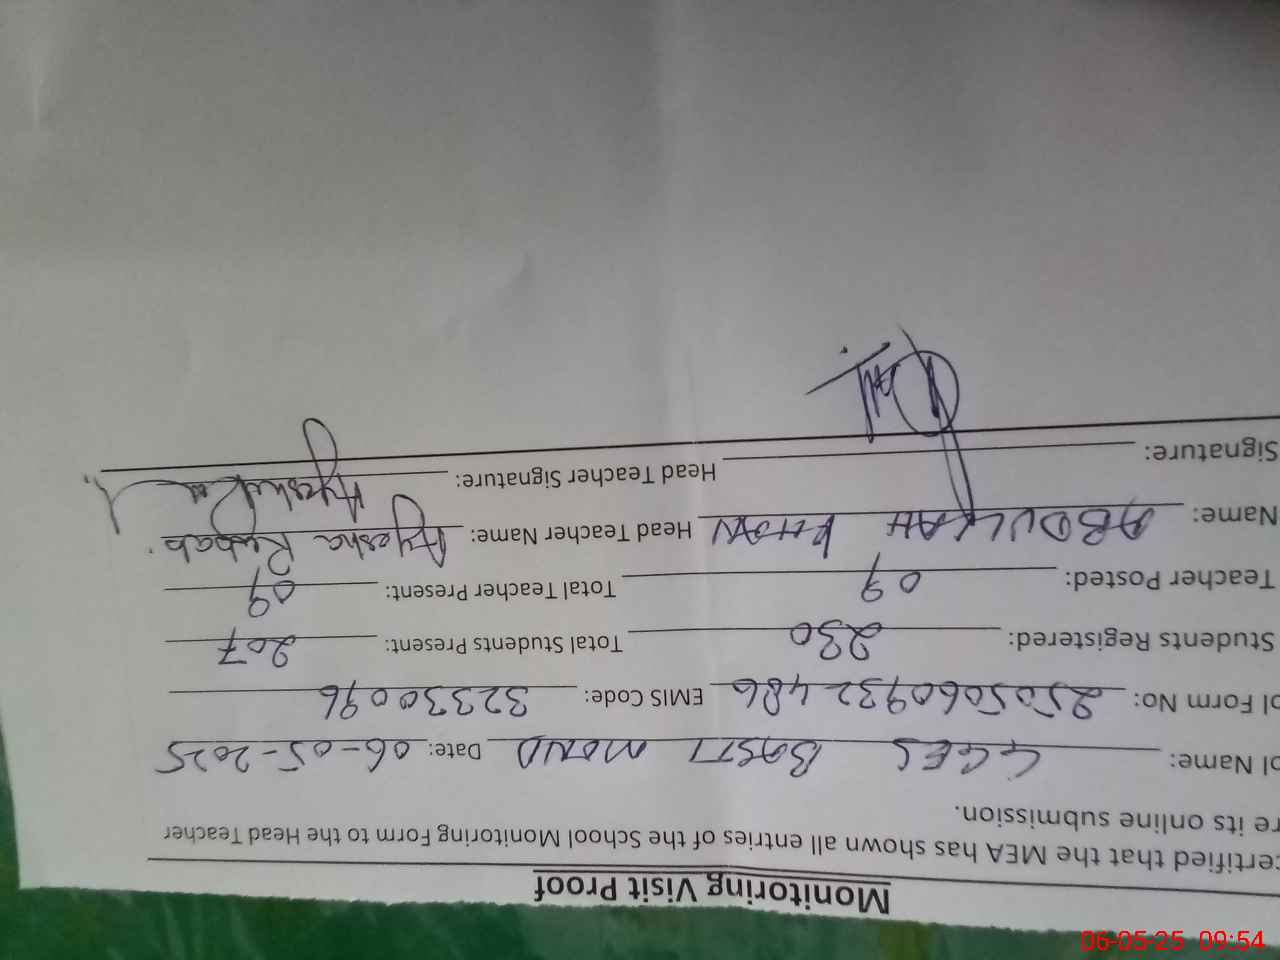 Monitoring Visit Proof
ertified that the MEA has shown all entries of the School Monitoring Form to the Head Teacher
re its online submission.
ol Name: GGES BASTI MOND Date: 06-05-2025
ol Form No: 2505060932486 EMIS Code: 32330096
Students Registered: 230 Total Students Present: 207
Teacher Posted: 09 Total Teacher Present: 09
Name: ABDULLAH KHAN Head Teacher Name: Ayesha Rubab
Signature: Head Teacher Signature: Ayesha
06-05-25 09:54